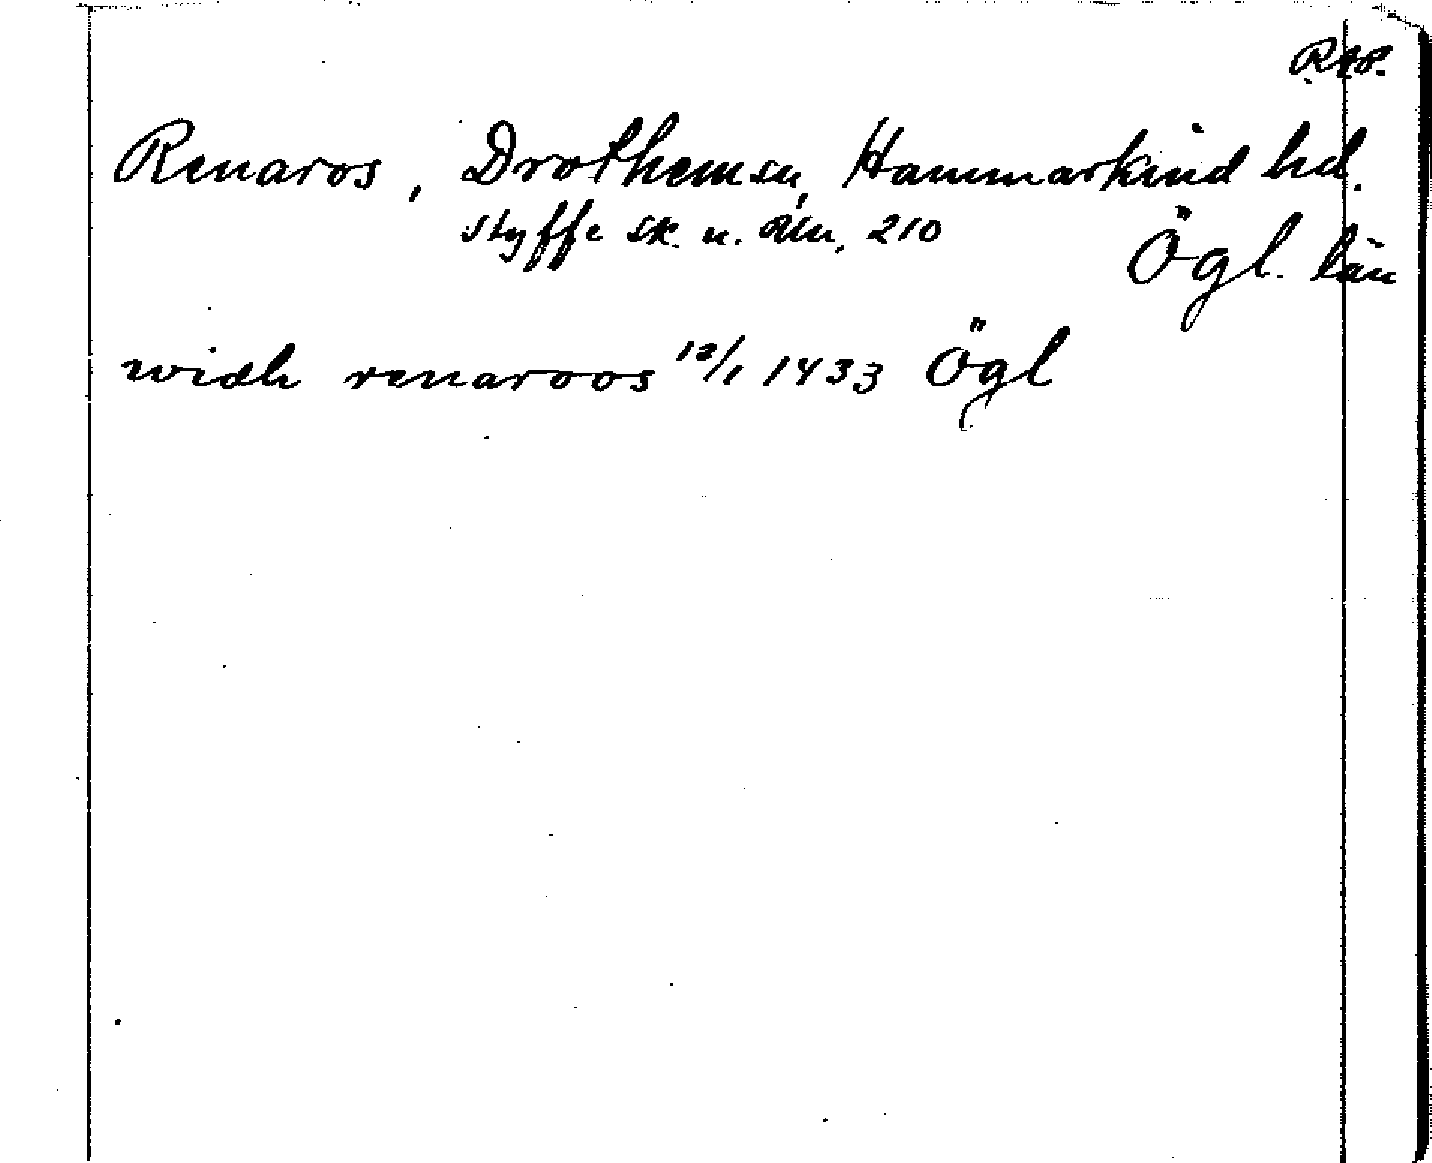 Rep.
Renaros, Drothem sn, Hammarkind hd.
Styffe Sk. u. Un, 210
Ögl. län
widh renaroos 12/1 1433 Ögl